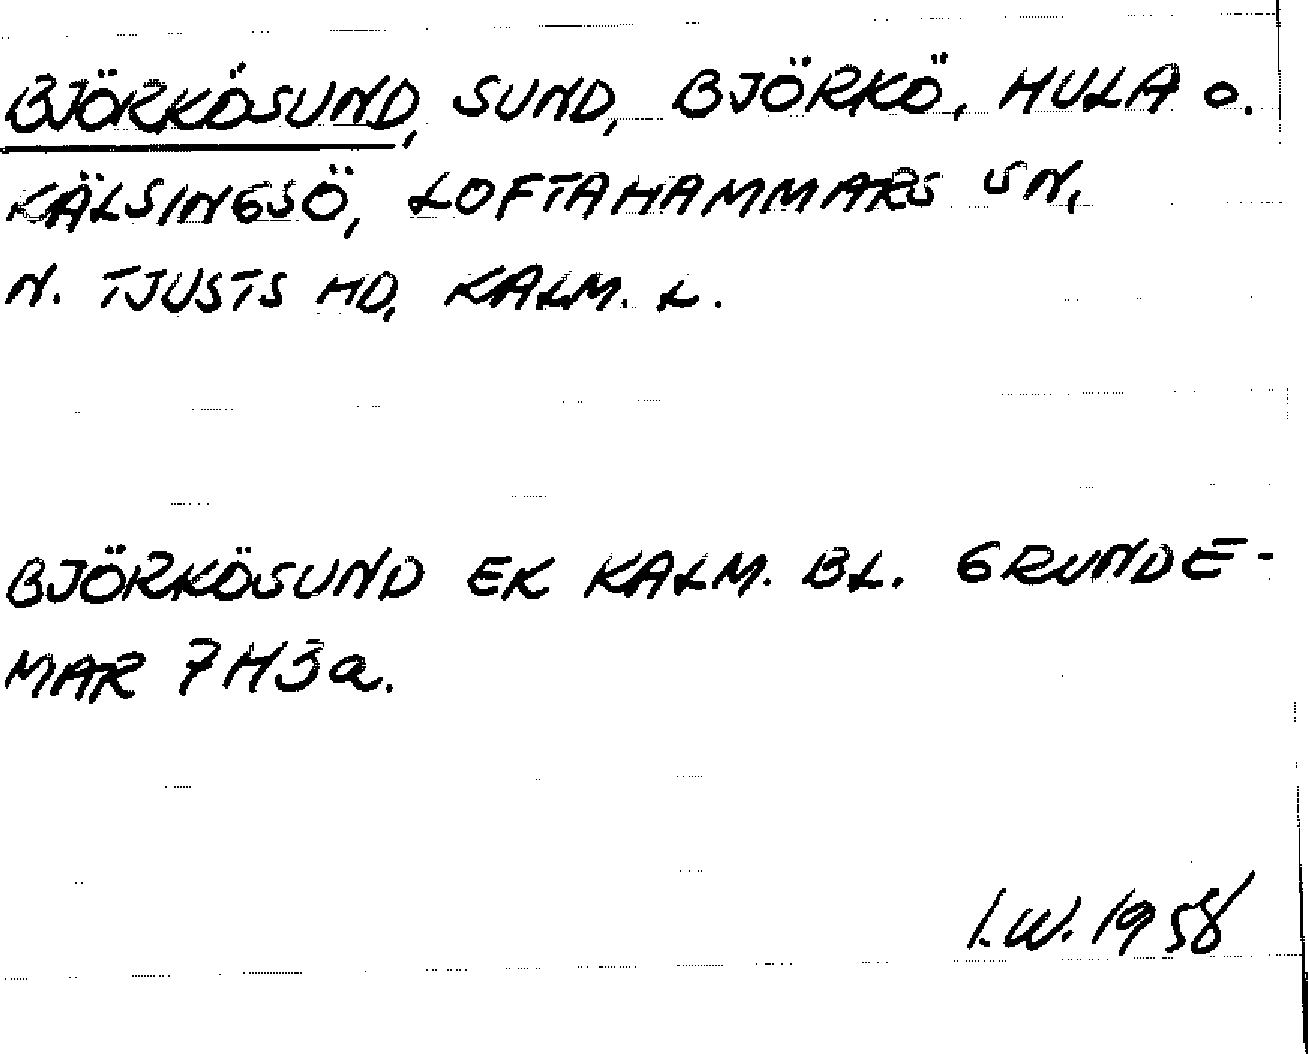 BJÖRKÖSUND, SUND, BJÖRKÖ, HULA o.
KÄLSINGSÖ, LOFTAHAMMARS SN,
N. TJUSTS HD, KALM. L.
BJÖRKÖSUND EK KALM. BL. GRUNDE-
MAR 7H3a.
I.W. 1958